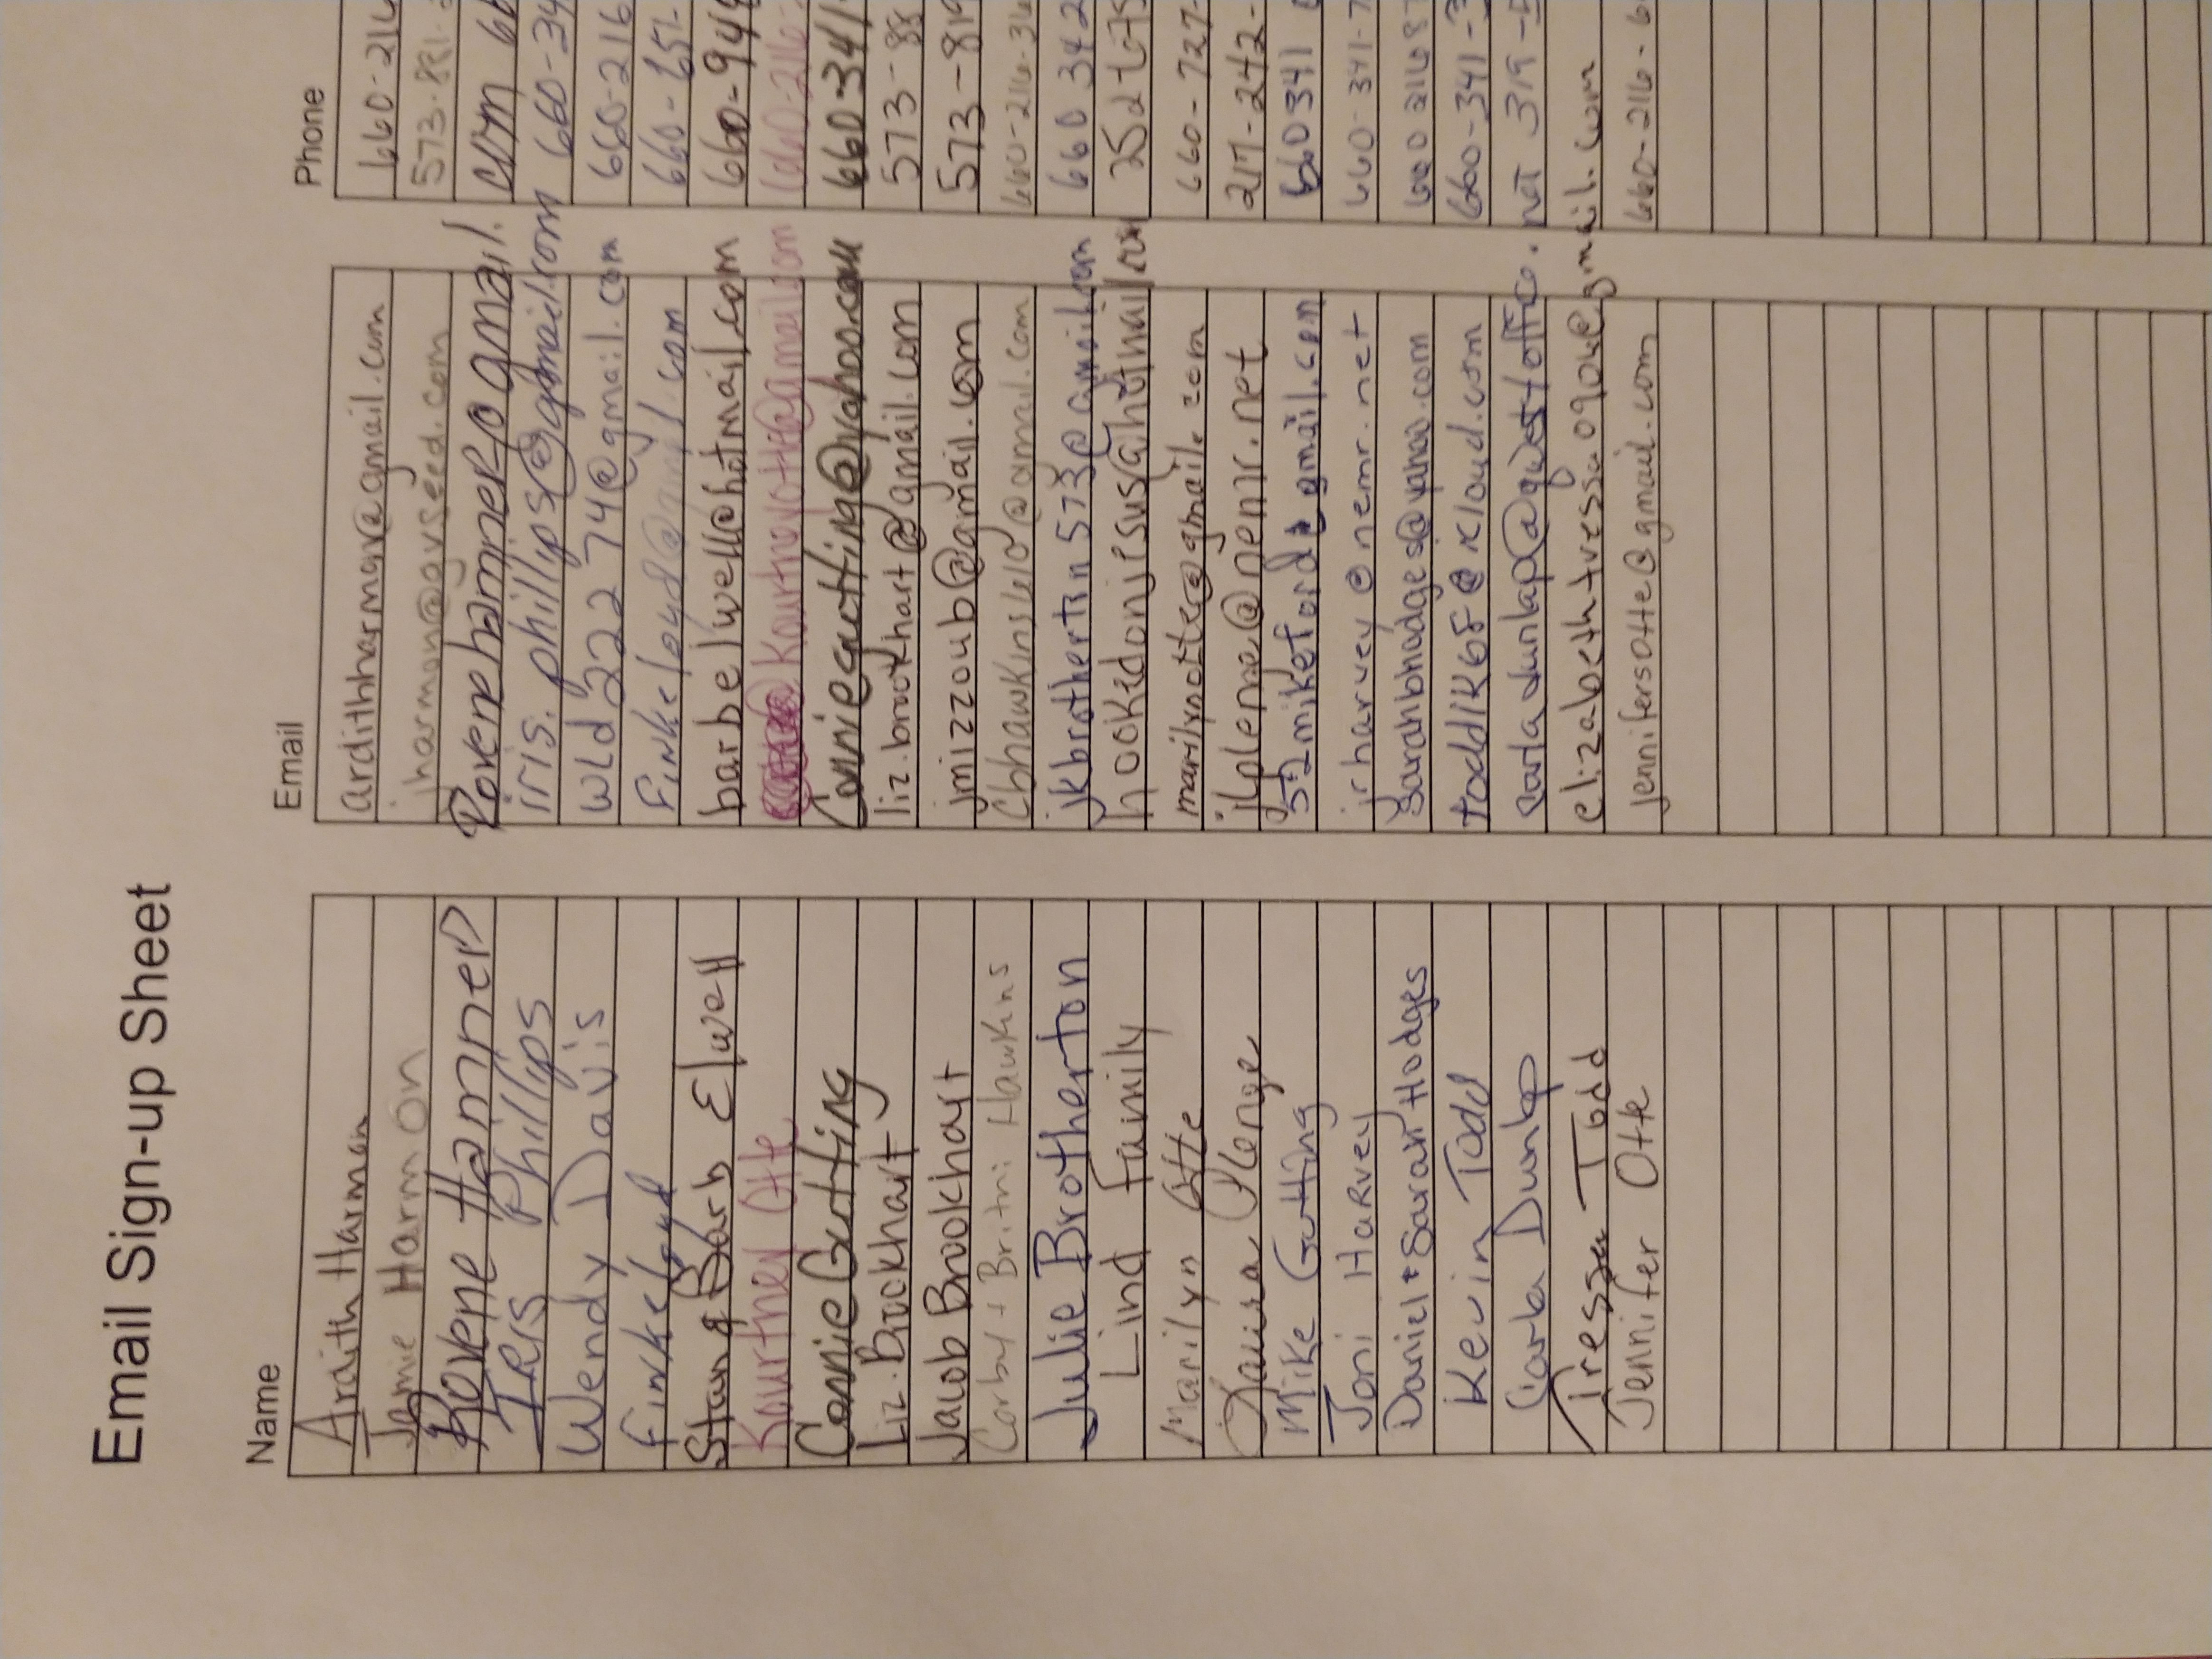 Email Sign-up Sheet
Name Email Phone
Ardith Harman ardithharman@gmail.com 660-216
Jamie Harmon jharmon@agvseed.com 573-881-
Rovene Hammer rovenehammer@gmail.com 66
IRIS Phillips iris.phillips@gmail.com 660-34
Wendy Davis wld22274@gmail.com 660-216
Finke Loyd finkeloyd@gmail.com 660-651-
Stan & Barb Elwell barbelwell@hotmail.com 660-946
Kourtney Otte Kourtneyott@gmail.com 660-216-
Connie Gutting Conniegutting@yahoo.com 660 341
Liz Brookhart liz.brookhart@gmail.com 573-88
Jacob Brookhart jmizzoub@gmail.com 573-819
Corby + Britni Hawkins cbhawkins@gmail.com 660-216-36
Julie Brotherton jkbrotherton573@gmail.com 660 342
Lind Family hookedonjesus@hotmail.com
Marilyn Otte marilynotte@gmail.com 660-727-
Plenge jlplenge@nemr.net 217-242-
Mike Gutting 52mikeford@gmail.com 660341
Joni Harvey jrharvey@nemr.net 660-341-7
Daniel + Sarah Hodges sarahbhodges@yahoo.com 660 216 87
Kevin Todd toddlk68@icloud.com 660-341-3
Carla Dunlap carladunlap@qwestoffice.net 319-5
Tressa Todd elizabethtressa0904@gmail.com
Jennifer Otte jennifersotte@gmail.com 660-216-6